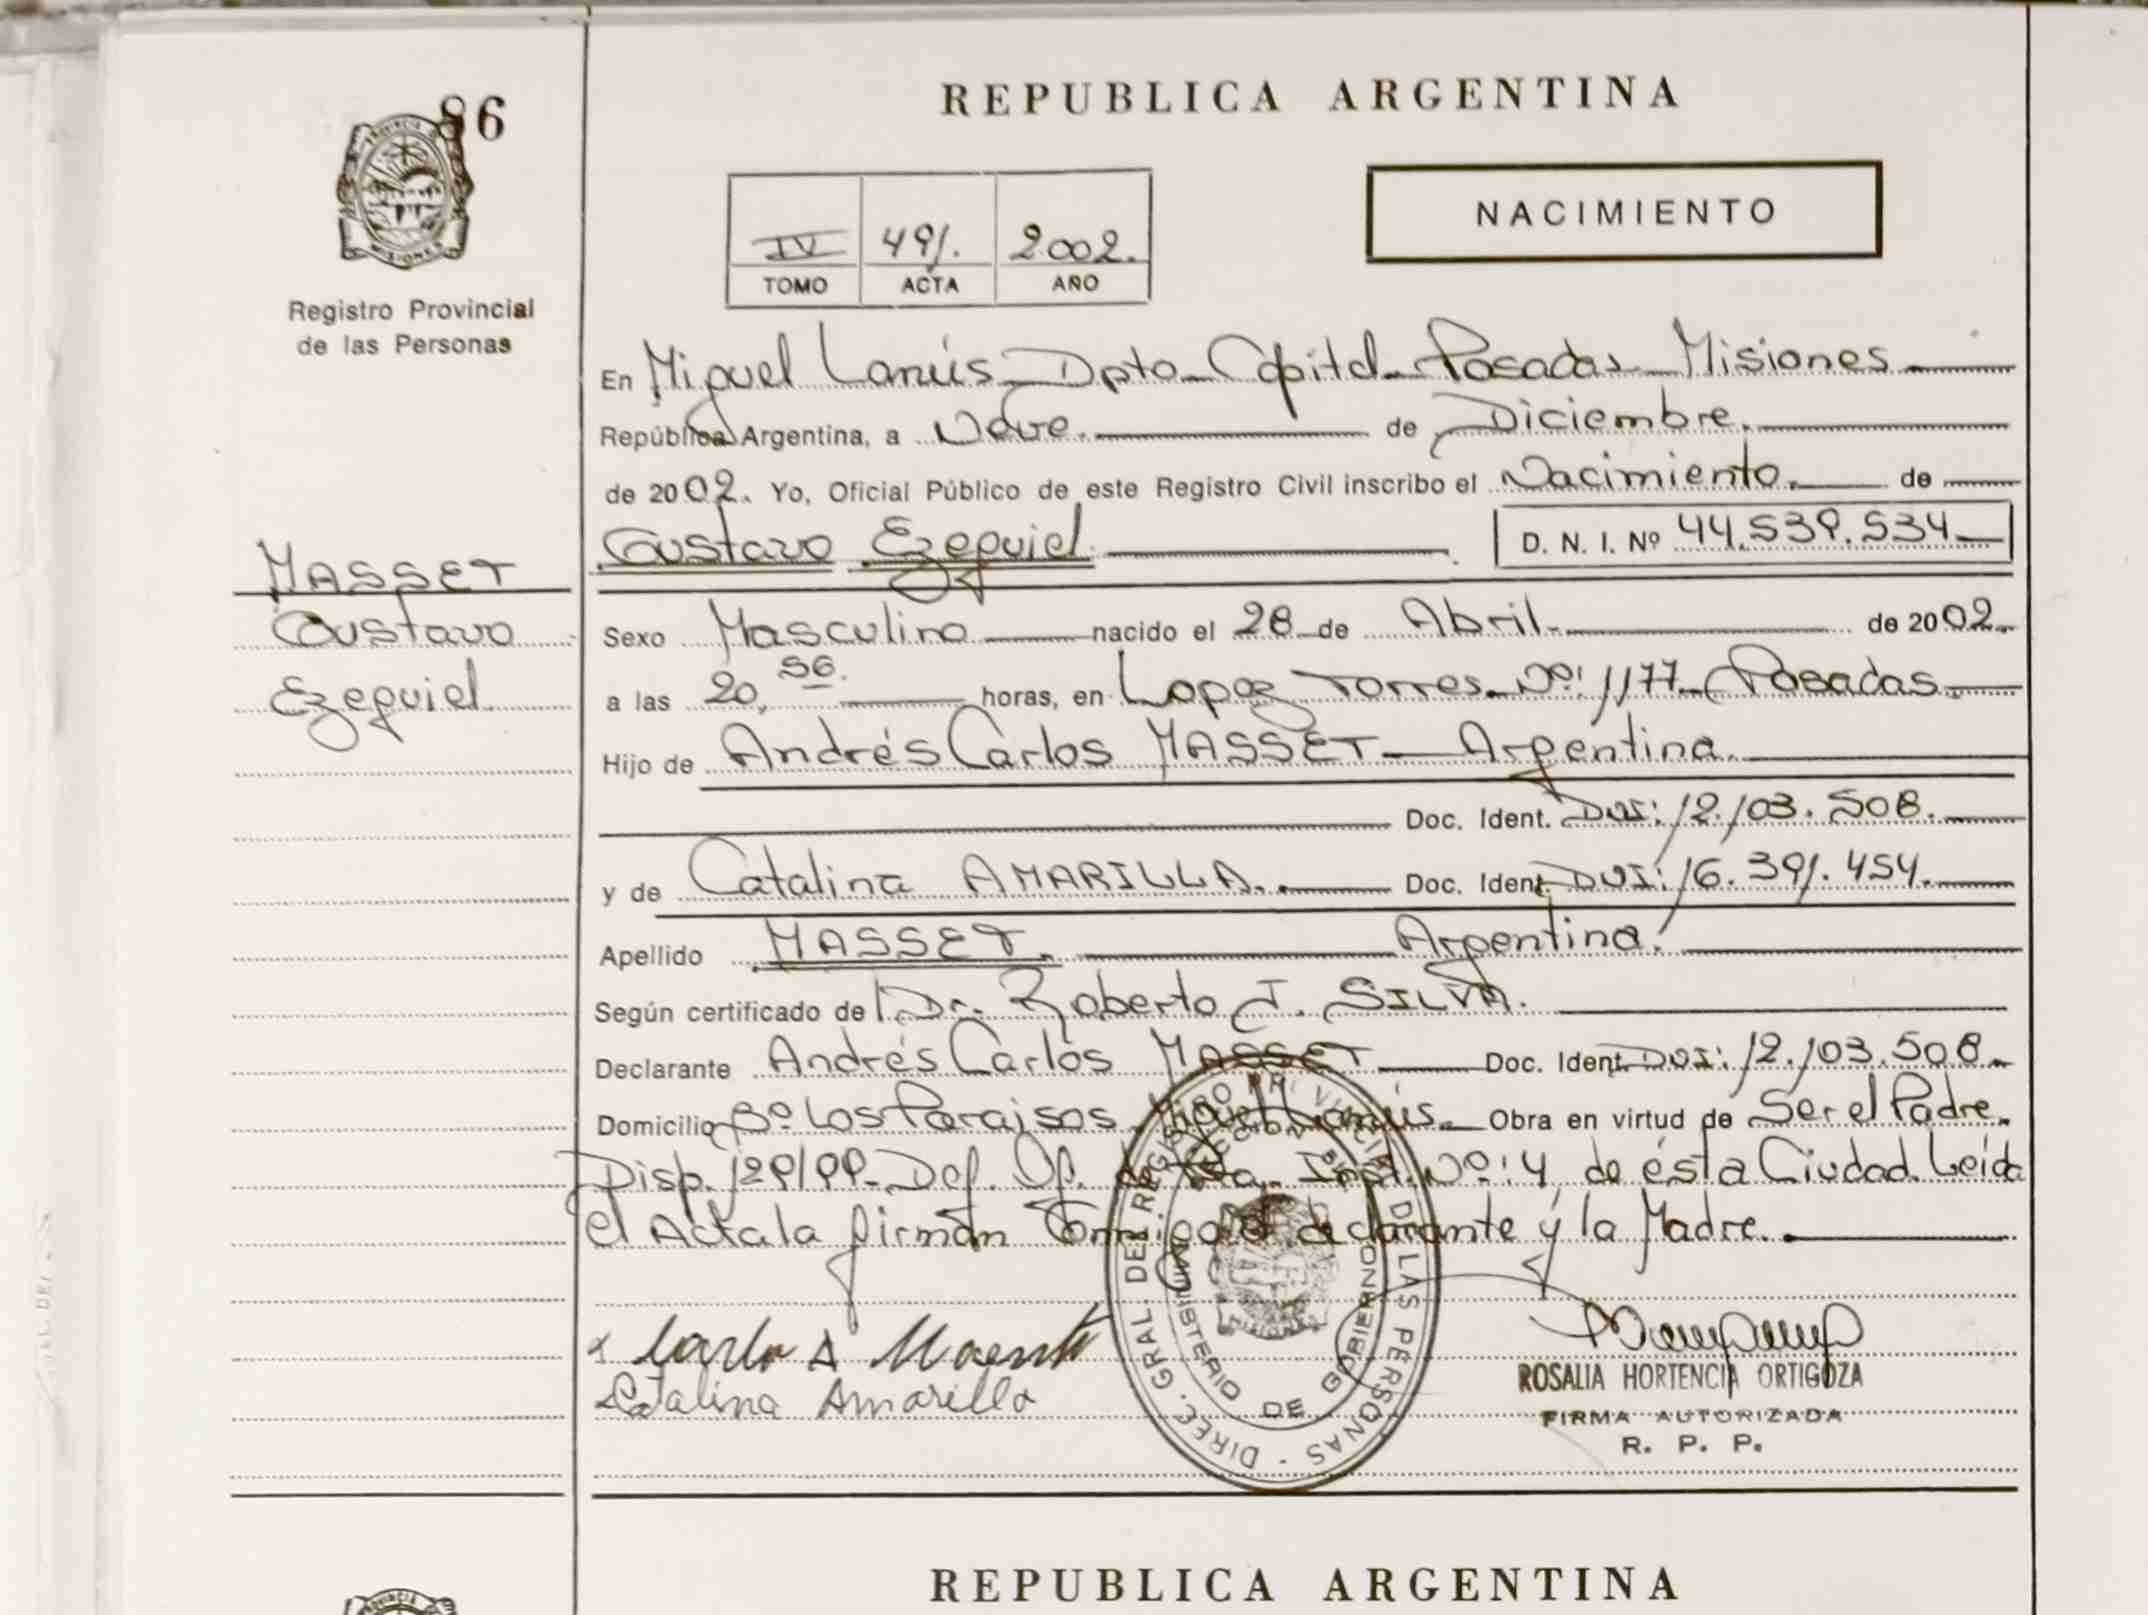 86
REPUBLICA ARGENTINA
NACIMIENTO
IV 491. 2002.
TOMO ACTA AÑO
Registro Provincial
de las Personas
En Miguel Lanús - Dpto - Capital - Posadas - Misiones
República Argentina, a Nueve. de Diciembre.
de 2002. Yo, Oficial Público de este Registro Civil inscribo el Nacimiento. de
Gustavo Ezequiel. D. N. I. Nº 44.539.534
MASSET
Gustavo
Ezequiel
Sexo Masculino nacido el 28 de Abril. de 2002.
a las 20,56. horas, en Lopez Torres Nº: 1177 - Posadas.
Hijo de Andrés Carlos MASSET - Argentina.
Doc. Ident. DNI: 12.103.508.
y de Catalina AMARILLA. Doc. Ident. DNI: 16.391.454.
Apellido MASSET. Argentina.
Según certificado de Dr. Roberto J. SILVA.
Declarante Andrés Carlos MASSET Doc. Ident. DNI: 12.103.508.
Domicilio Bº Los Paraisos. Miguel Lanús. Obra en virtud de Ser el Padre.
Disp. 129/99 - Def. Of. de 1ra. Inst. Nº: 4 de ésta Ciudad. Leída
el Acta la firman Conmigo el declarante y la Madre.
Catalina Amarilla
DIREC. GRAL. DEL REGISTRO PROVINCIAL DE LAS PERSONAS
MINISTERIO DE GOBIERNO
ROSALIA HORTENCIA ORTIGOZA
FIRMA AUTORIZADA
R. P. P.
REPUBLICA ARGENTINA